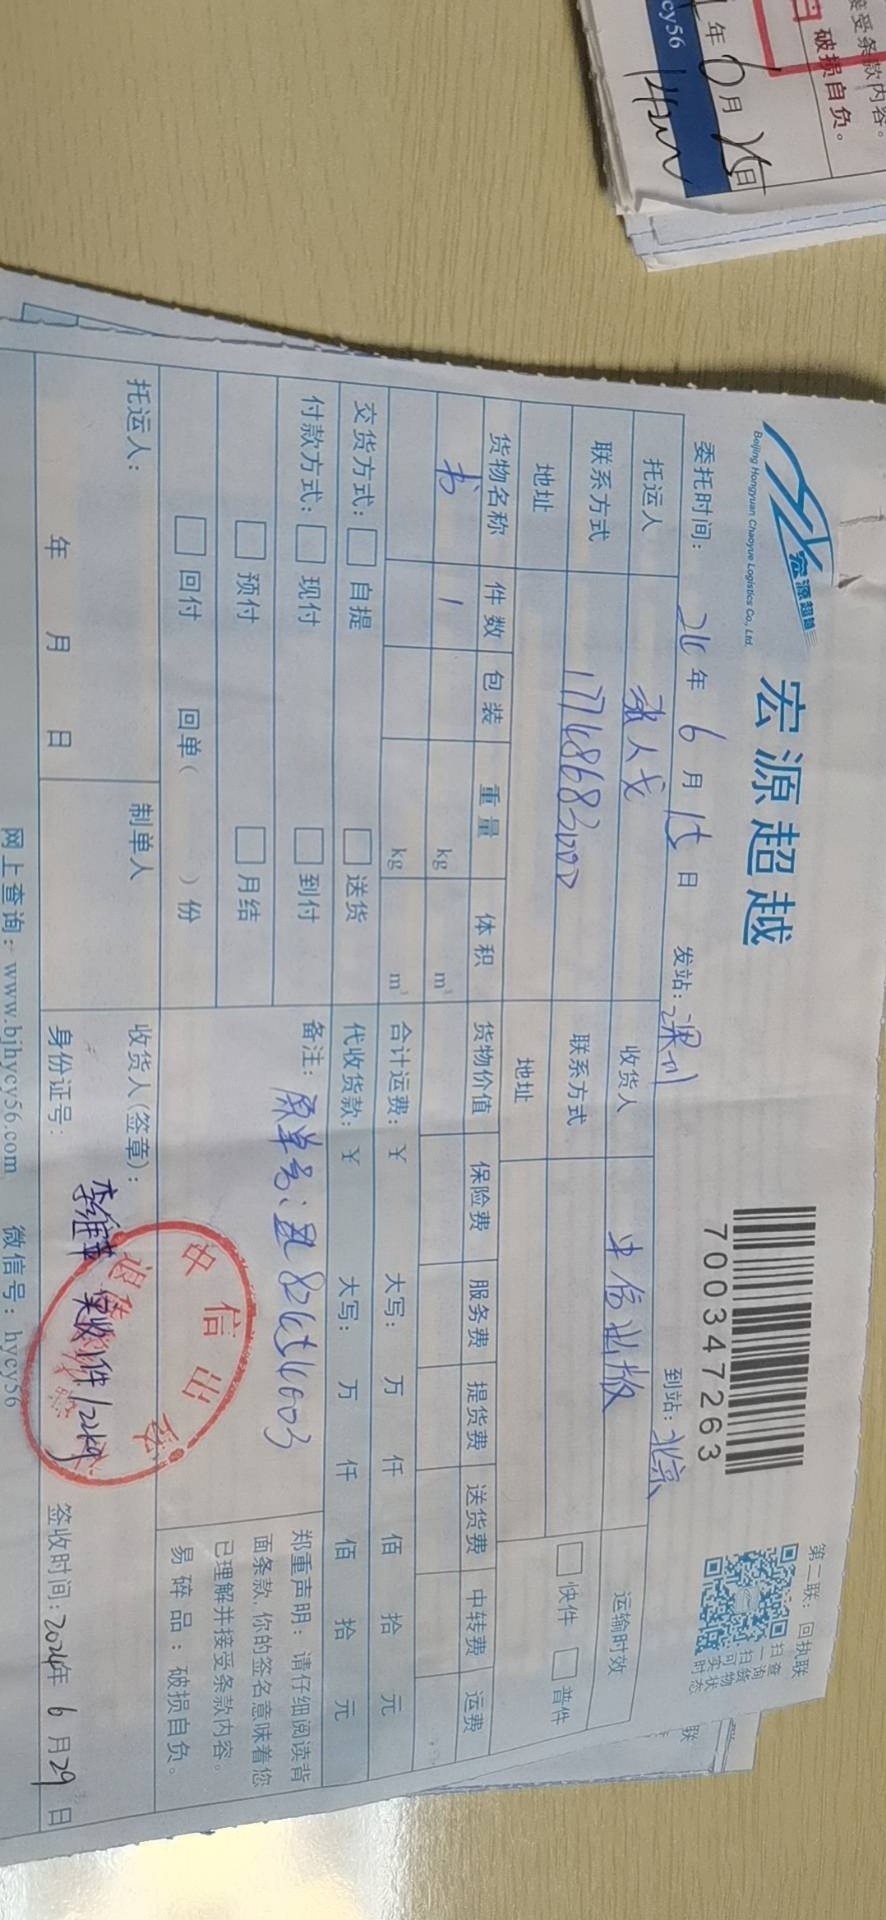 宏源超越
Beijing Hongyuan Chaoyue Logistics Co., Ltd.
宏源超越
700347263
第二联：回执联
扫一扫可实时
查询货物状态
委托时间： 24年6月15日 发站：深圳 到站：北京
托运人 收货人 中信出版 运输时效
联系方式 联系方式 快件 普件
地址 地址
货物名称 件数 包装 重量 体积 货物价值 保险费 服务费 提货费 送货费 中转费 运费
书 1 kg m³
kg m³ 合计运费：¥ 大写： 万 仟 佰 拾 元
交货方式： 自提 送货 代收货款：¥ 大写： 万 仟 佰 拾 元
付款方式： 现付 到付 备注：原单号：
预付 月结
回付 回单（ ）份
郑重声明：请仔细阅读背
面条款，你的签名意味着您
已理解并接受条款内容。
易碎品：破损自负。
托运人： 制单人 收货人(签章)：
李维革 实收1件/22kg
中信出版
年 月 日 身份证号： 签收时间：2024年6月29日
网上查询：www.bjhycy56.com 微信号：hycy56
接受条款内容。
破损自负。
年6月25日
cy56
联